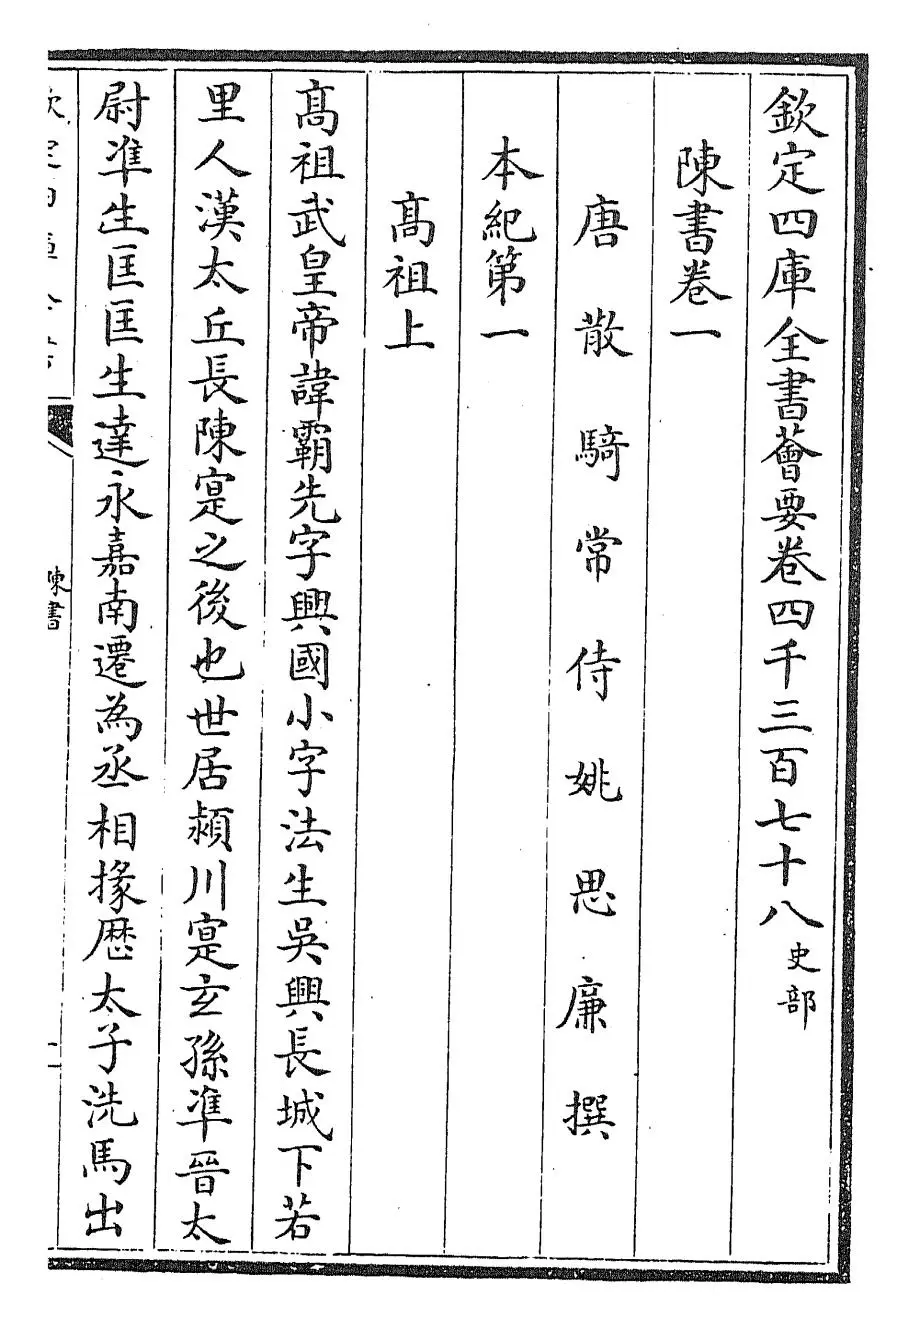 欽定四庫全書薈要卷四千三百七十八史部
陳書卷一
唐散騎常侍姚思廉撰
本紀第一
高祖上
髙祖武皇帝諱霸先字興國小字法生吳興長城下若
里人漢太丘長陳寔之後也世居潁川寔玄孫準晉太
尉準生匡匡生達永嘉南遷為丞相掾歷太子洗馬出
陳書